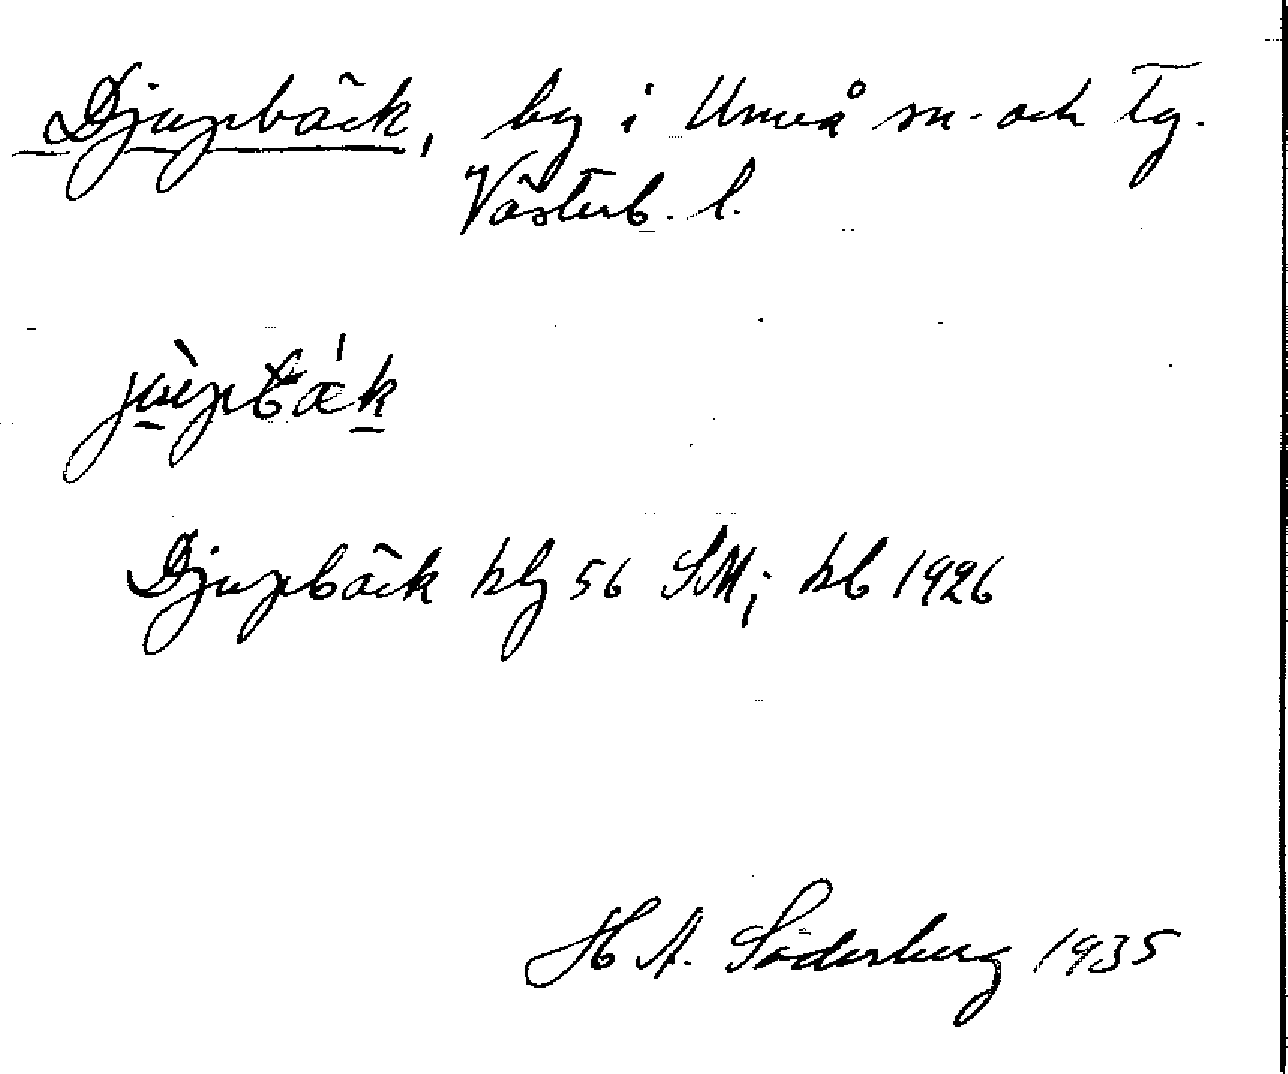 Djupbäck, by i Umeå sn. och tg.
Västerb. l.
jùpbæ̍k
Djupbäck hlg 56 SM; hb 1926
H A. Söderberg 1935